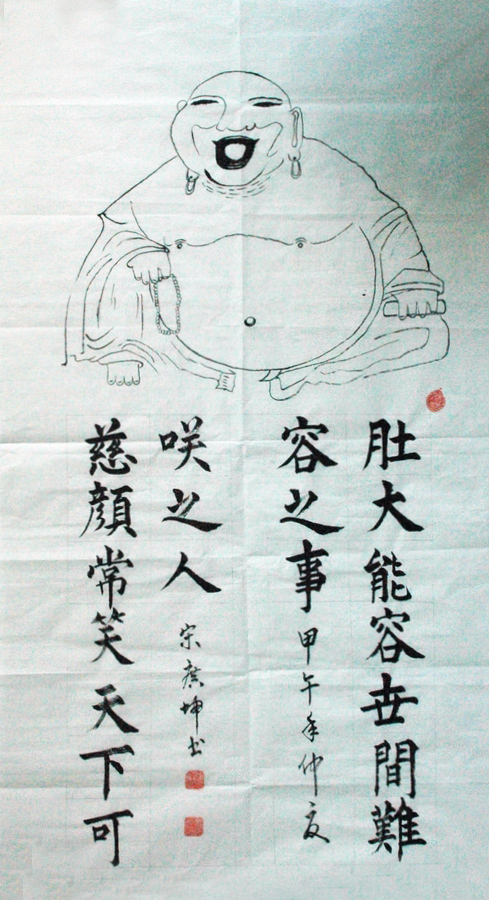 肚大能容世間難
容之事
甲午年仲夏
慈顔常笑天下可
咲之人
宋 坤书